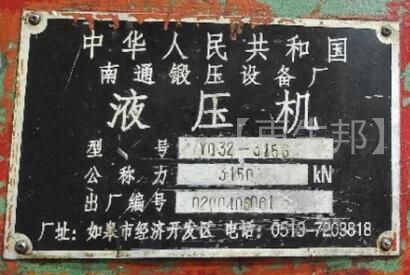 中华人民共和国
南通锻压设备厂
液压机
型号 YQ32-315G
公称力 3150 kN
出厂编号
厂址：如皋市经济开发区 电话：0513-7203818